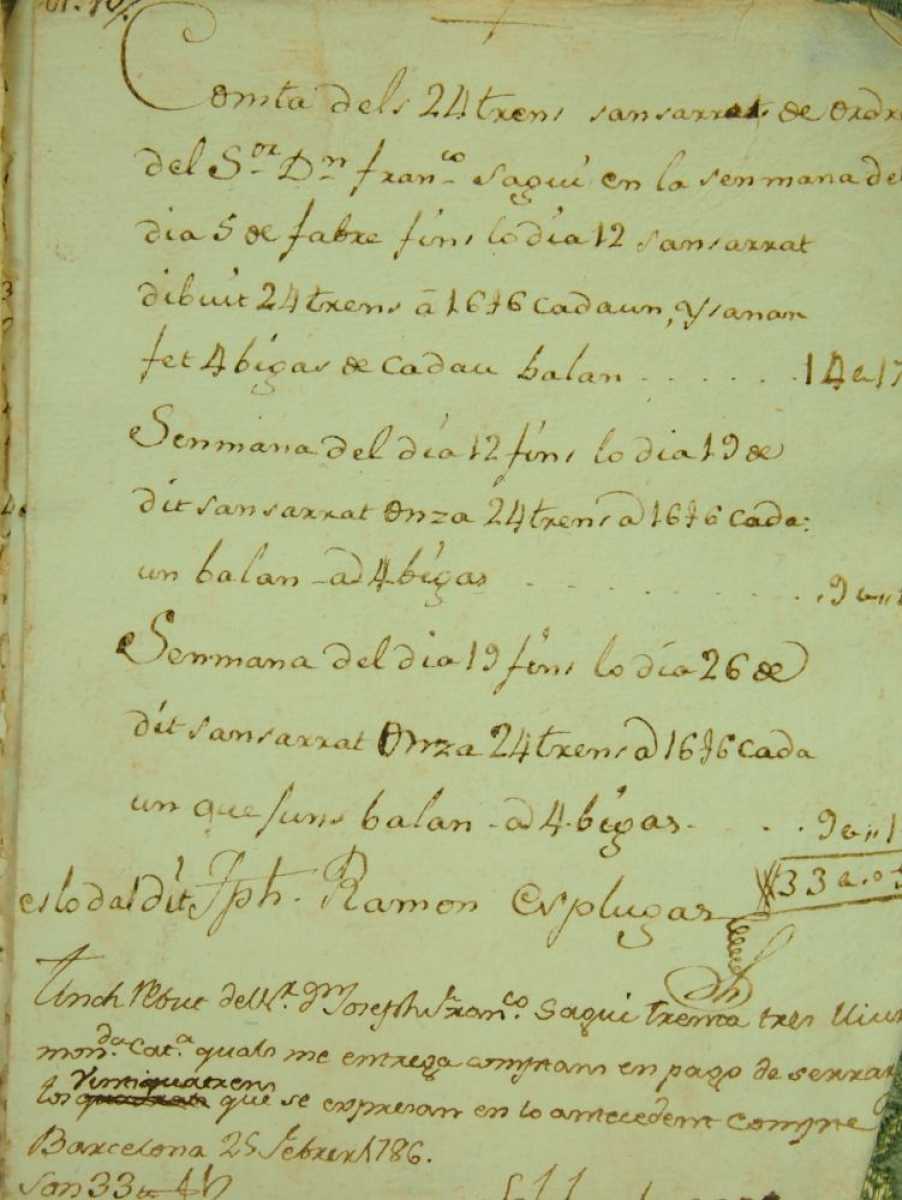 Comta dels 24 trens sansarrats de ordre
del S.or D.n fran.co saguì en la senmana del
dia 5 de fabre fins lo dia 12 sansarrat
dibuit 24 trens â 16ƚ6 cada un, y sanan
fet 4 bigas de cadau balan . . . . . . . 14 a 17
Senmana del dia 12 fins lo dia 19 de
dit sansarrat Onza 24 trens a 16ƚ6 cada:
un balan - a 4 bigas . . . . . . . 9
Senmana del dia 19 fins lo dia 26 de
dit sansarrat Onza 24 trens a 16ƚ6 cada
un que funs balan - a 4 bigas . . . 9
33
es lo dal dit Jph. Ramon Esplugas
Tinch rebut del Sr. Dn Joseph Fran.co Sagui trenta tres lliur
mon.da Cat.a quals me entrega comptans en pago de serrar
Vintiquatrens
los que se expresan en lo antecedent Compte
Barcelona 25 Febrer 1786.
Son 33